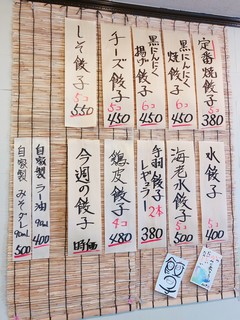 定番焼餃子 5コ 380
黒にんにく焼餃子 6コ 450
黒にんにく揚げ餃子 6コ 450
チーズ餃子 5コ 450
しそ餃子 5コ 550
水餃子 5コ 400
海老水餃子 5コ 500
手羽餃子 レギュラー 2本 380
鶏皮餃子 4コ 480
今週の餃子 時価
自家製 ラー油 90ml 400
自家製 みそダレ 90ml 500